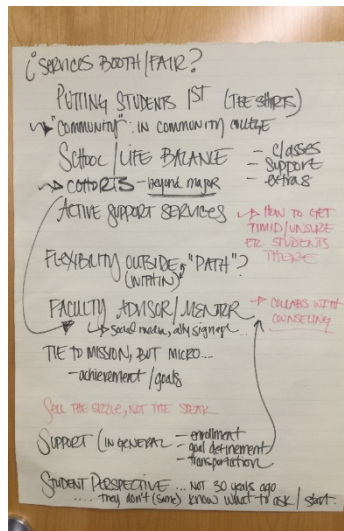 ¿SERVICES BOOTH/FAIR?
PUTTING STUDENTS 1ST (TEE SHIRTS)
"COMMUNITY" IN COMMUNITY COLLEGE
SCHOOL/LIFE BALANCE
- classes
- support
- extras
COHORTS - beyond major
ACTIVE SUPPORT SERVICES
HOW TO GET
TIMID/UNSURE
STUDENTS
THERE
FLEXIBILITY OUTSIDE "PATH"?
(WITHIN)
FACULTY ADVISOR/MENTOR
COLLABS WITH
COUNSELING
social media, ally signup...
TIE TO MISSION, BUT MICRO...
- achievement/goals
SELL THE SIZZLE, NOT THE STEAK
SUPPORT (IN GENERAL)
- enrollment
- goal definement
- transportation
STUDENT PERSPECTIVE ... NOT 30 years ago
..... they don't (some) know what to ask / start.